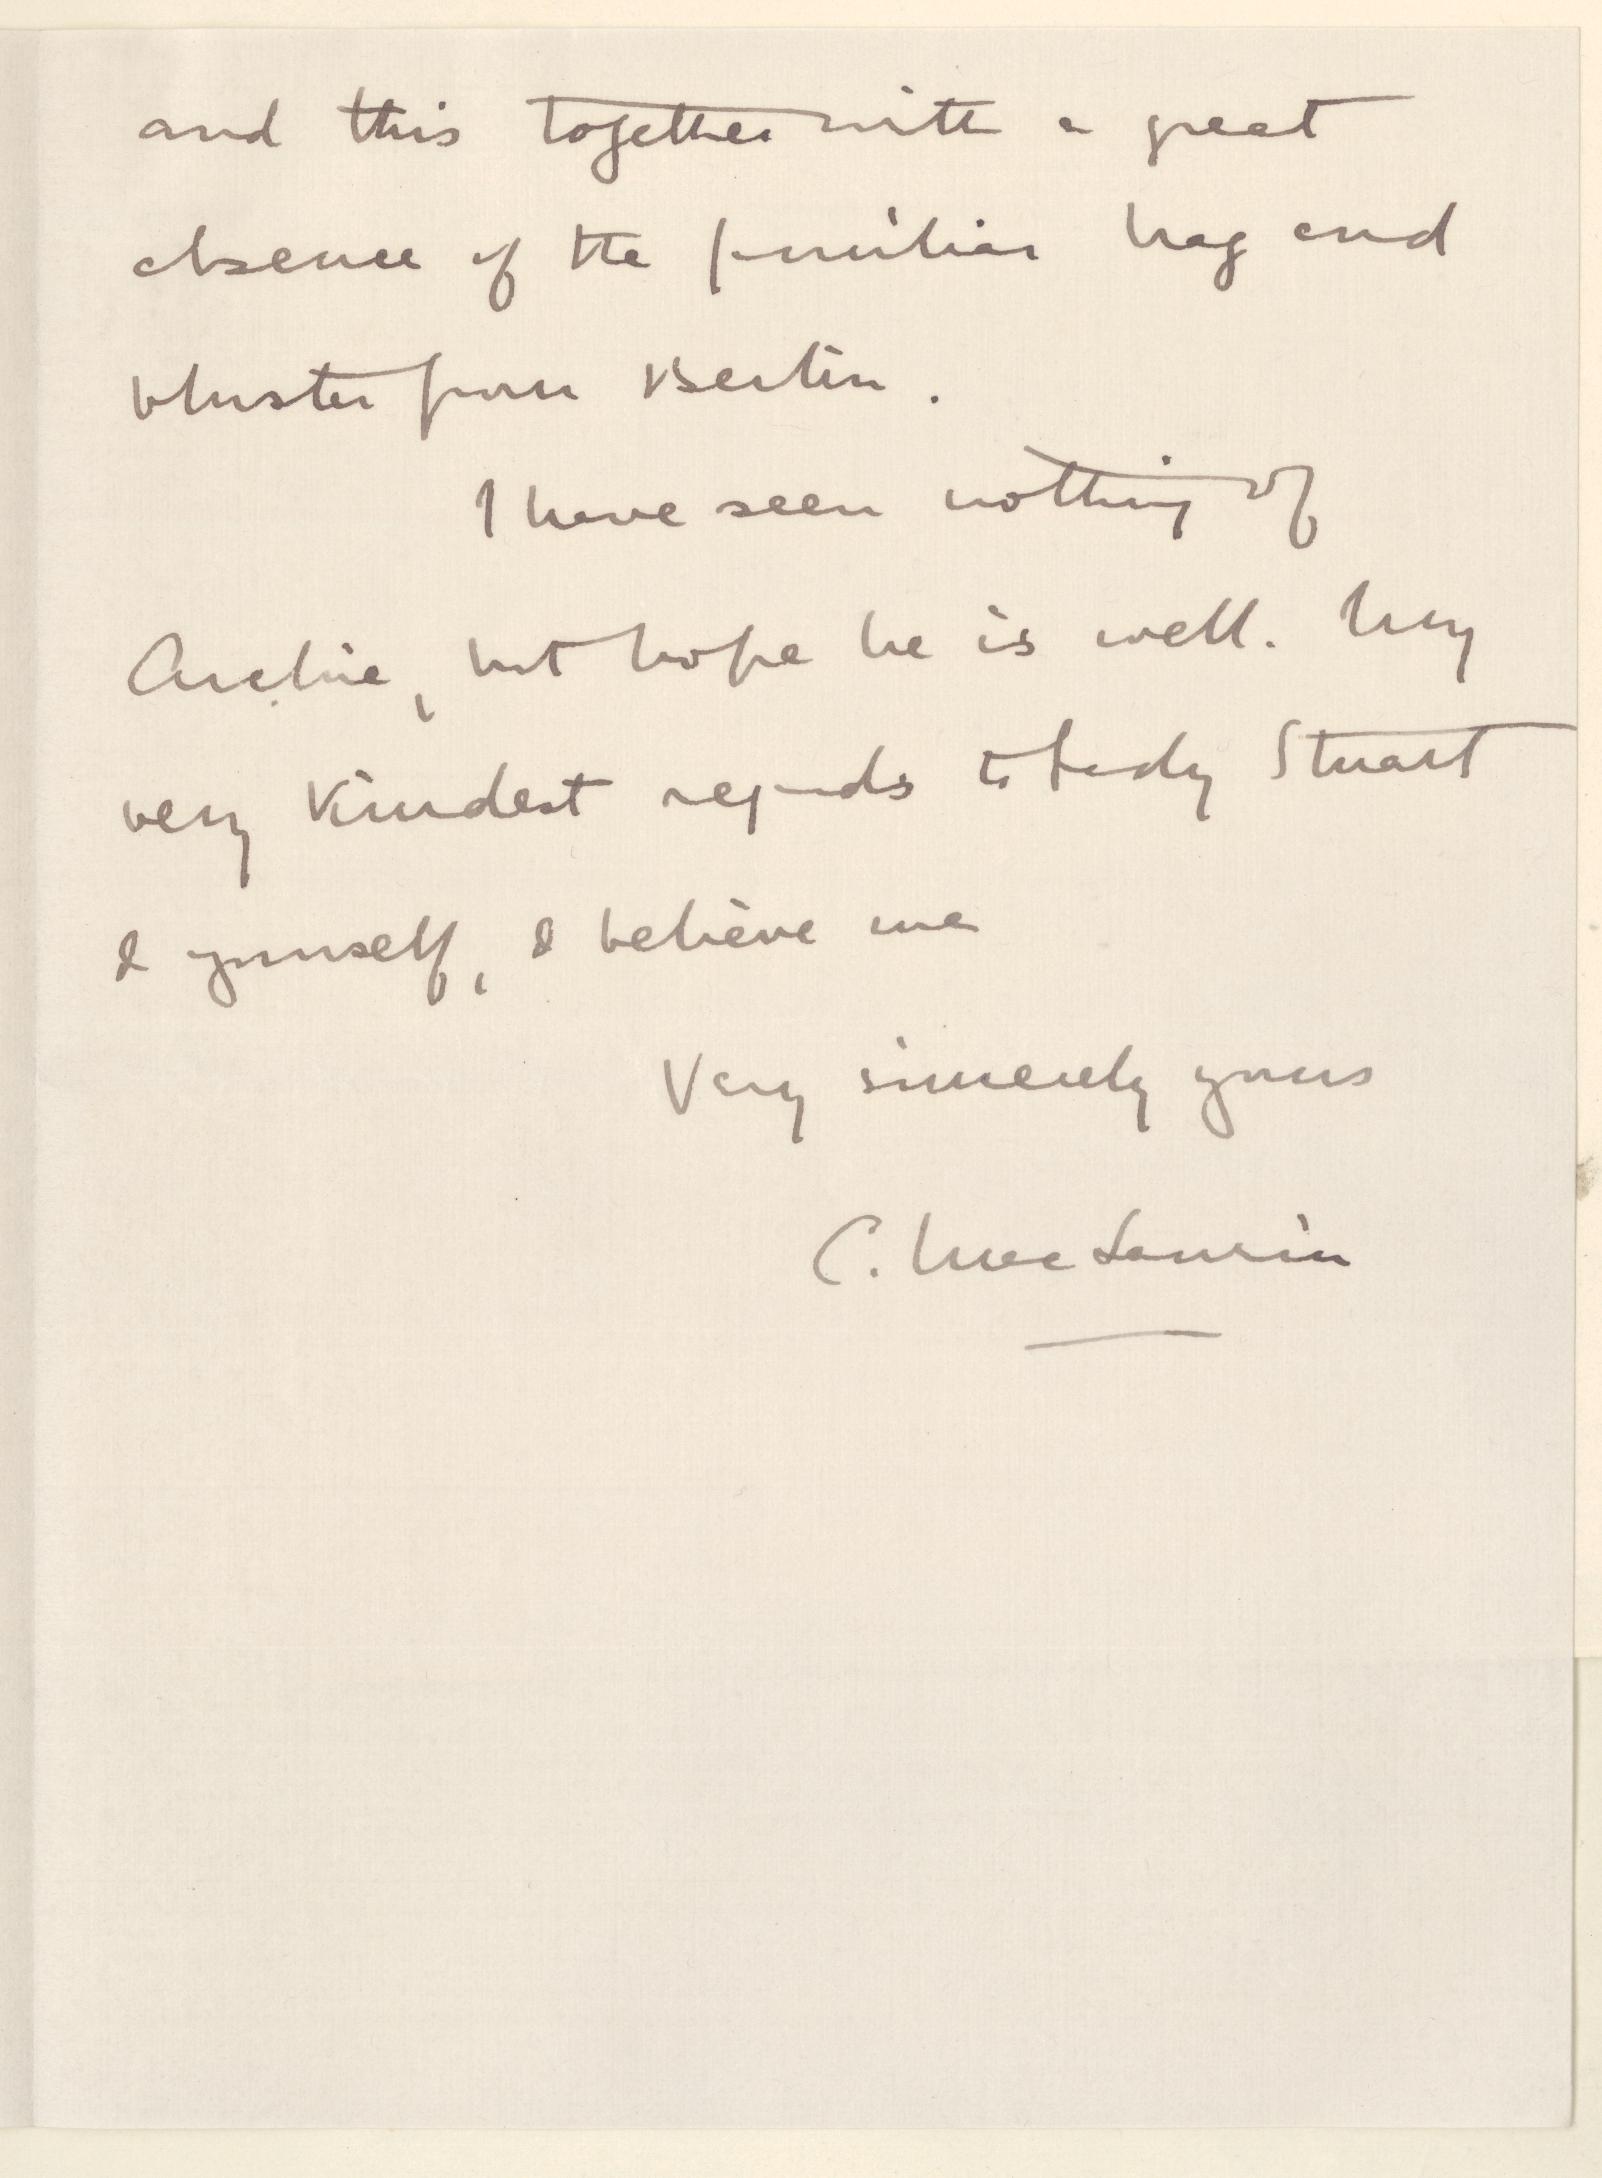 and this together with a great
absence of the familiar brag and
bluster from Berlin.
I have seen nothing of
Archie, but hope he is well. My
very kindest regards to Lady Stuart
& yourself, & believe me
Very sincerely yours
C. MacLaurin